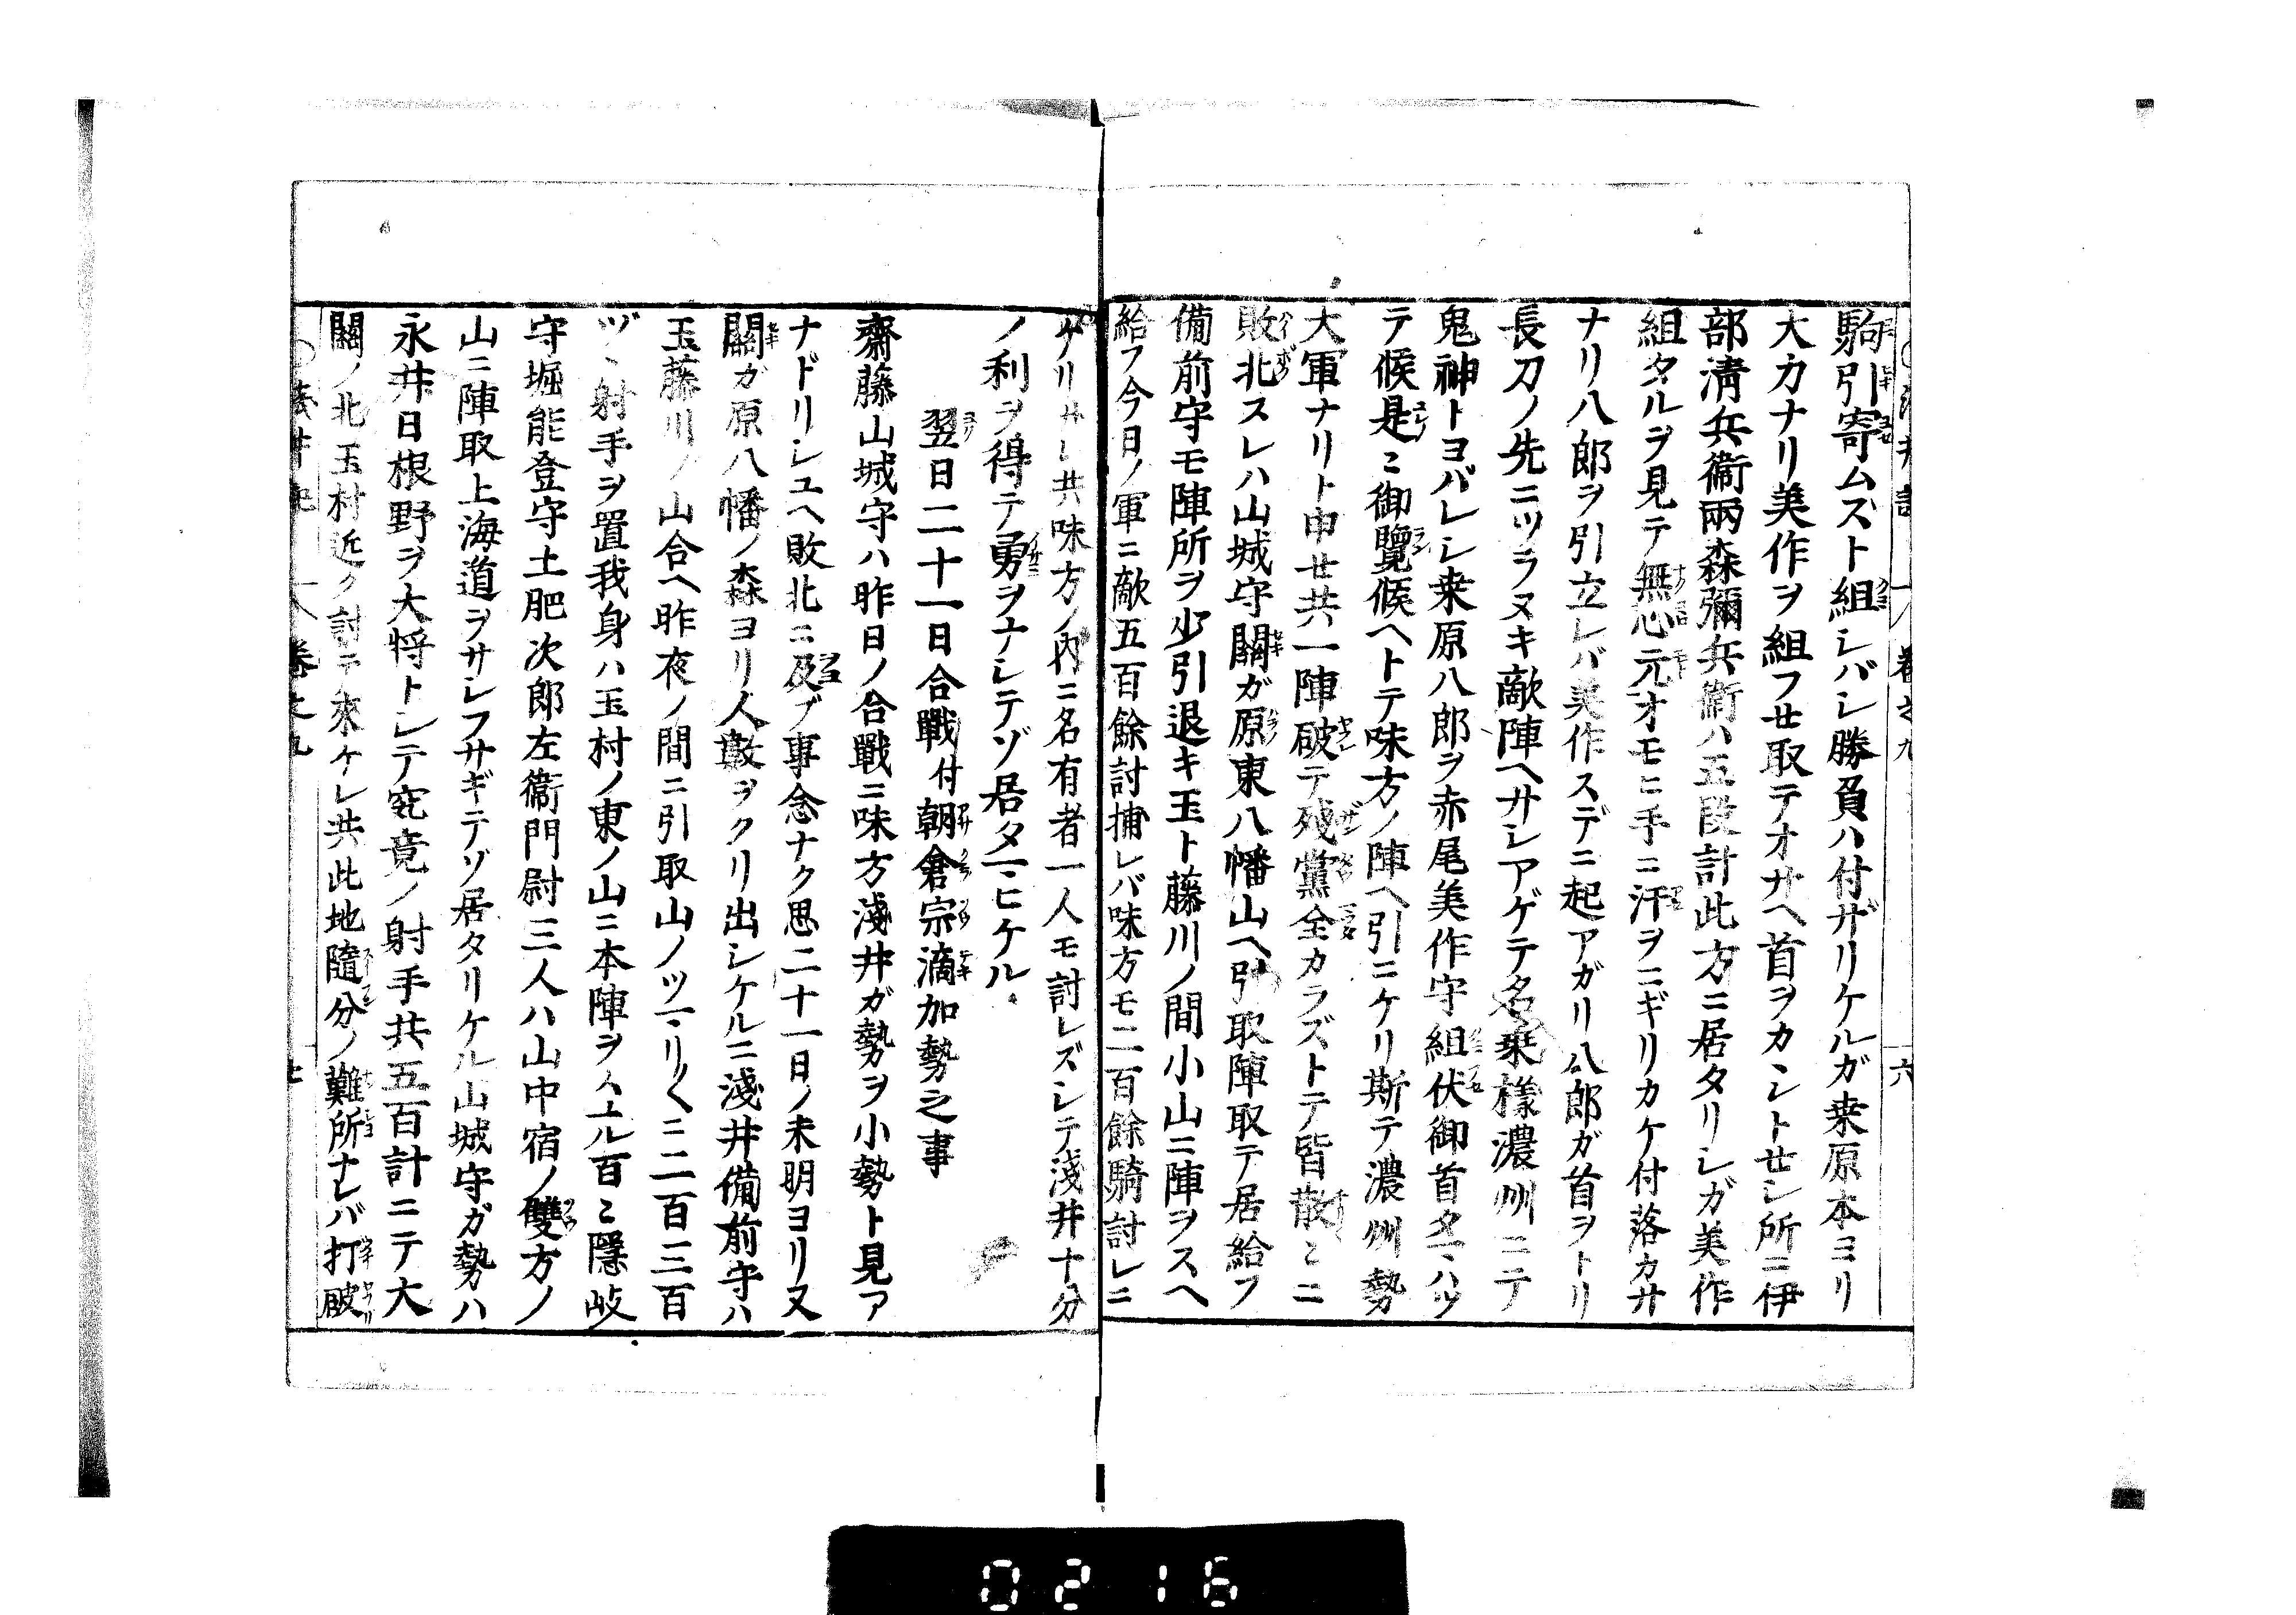 駒引寄ムズト組シバシ勝負ハ付ザリケルガ桒原本ヨリ
大力ナリ美作ヲ組フセ取テオサヘ首ヲカントセシ所ニ伊
部淸兵衞兩森彌兵衞ハ五段計此方ニ居タリシガ美作
組タルヲ見テ無心元オモヒ手ニ汗ヲニギリカケ付落カサ
ナリ八郎ヲ引立レバ美作スデニ起アガリ八郎ガ首ヲトリ
長刀ノ先ニツラヌキ敵陣ヘサシアゲテ名乗様濃州ニテ
鬼神トヨバレシ桒原八郎ヲ赤尾美作守組伏御首タマハツ
テ候是ミ御覽候ヘトテ味方ノ陣ヘ引ニケリ斯テ濃州勢
大軍ナリト申セ共一陣破テ殘黨全カラズトテ皆散ミニ
敗北スレハ山城守關ガ原東八幡山ヘ引取陣取テ居給フ
備前守モ陣所ヲ少引退キ玉ト藤川ノ間小山ニ陣ヲスヘ
給フ今日ノ軍ニ敵五百餘討捕レバ味方モ二百餘騎討レニ
ケリサレ共味方ノ内ニ名有者一人モ討レズシテ淺井十分
ノ利ヲ得テ勇ヲナシテゾ居タマヒケル
翌日二十一日合戰付朝倉宗滴加勢之事
齋藤山城守ハ昨日ノ合戰ニ味方淺井ガ勢ヲ小勢ト見ア
ナドリシユヘ敗北ニ及ブ事念ナク思二十一日ノ未明ヨリ又
關ガ原八幡ノ森ヨリ人數ヲクリ出シケルニ淺井備前守ハ
玉藤川ノ山合ヘ昨夜ノ間ニ引取山ノツマリ〱ニ二百三百
ヅヽ射手ヲ置我身ハ玉村ノ東ノ山ニ本陣ヲスヱル百ミ隱岐
守堀能登守土肥次郎左衞門尉三人ハ山中宿ノ雙方ノ
山ニ陣取上海道ヲサシフサギテゾ居タリケル山城守ガ勢ハ
永井日根野ヲ大將トシテ究竟ノ射手共五百計ニテ大
關ノ北玉村近ク討テ來ケレ共此地隨分ノ難所ナレバ打破